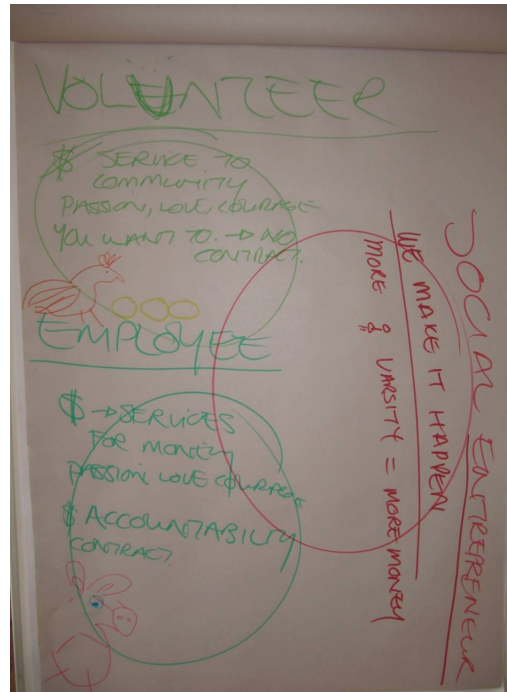 VOLUNTEER
$ SERVICE TO
COMMUNITY
PASSION, LOVE, COURAGE
YOU WANT TO. → NO
CONTRACT.
EMPLOYEE
$ → SERVICES
FOR MONEY
PASSION, LOVE COURAGE
$ ACCOUNTABILITY
CONTRACT.
SOCIAL ENTREPRENEUR
WE MAKE IT HAPPEN
MORE & VARSITY = MORE MONEY